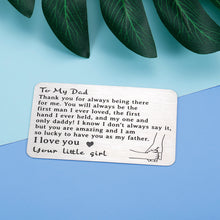 To My Dad
Thank you for always being there
for me. You will always be the
first man I ever loved, the first
hand I ever held, and my one and
only daddy! I know I don't always say it,
but you are amazing and I am
so lucky to have you as my father.
I love you
Your little girl